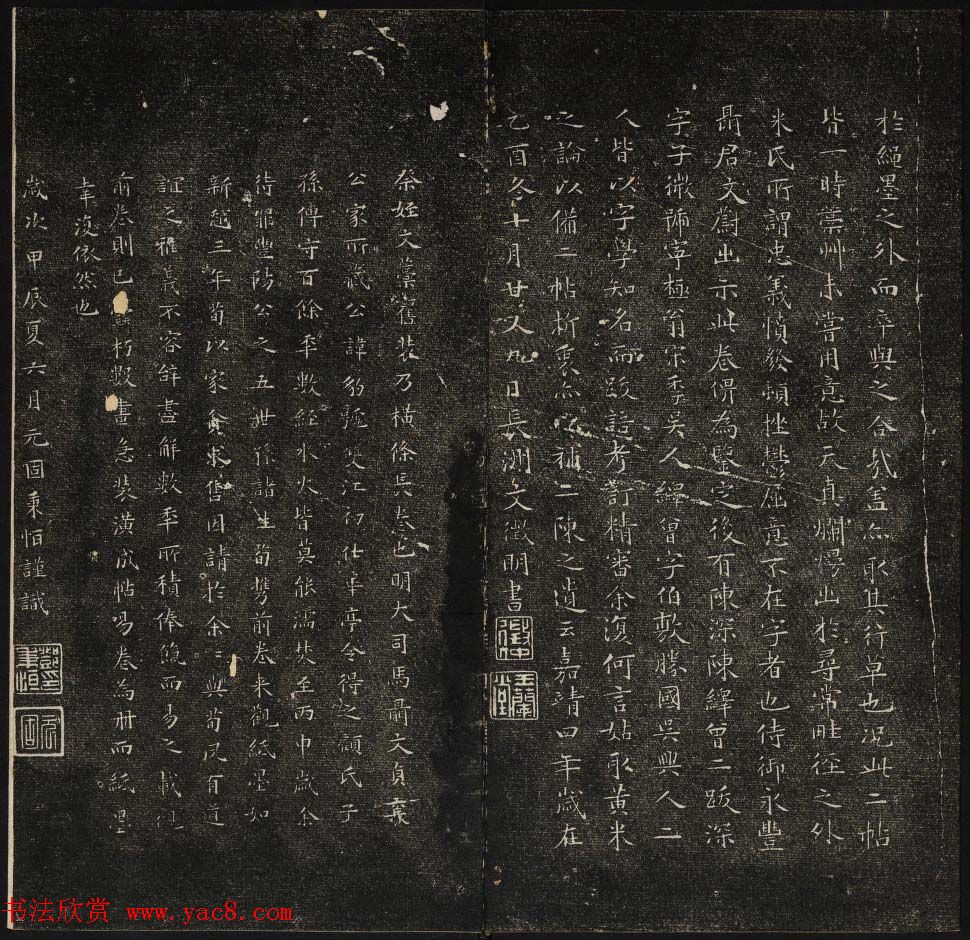 於繩墨之外而卒與之合哉蓋亦取其行草也況此二帖
皆一時藁草未嘗用意故天真爛慢出於尋常畦徑之外
米氏所謂忠義憤發頓挫鬱屈意不在字者也侍御永豐
聶君文蔚出示此卷俾為鑒定後有陳深陳繹曾二跋深
字子微號寧極翁宋季吳人繹曾字伯敷勝國吳興人二
人皆以字學知名而跋語考訂精審余復何言姑取黃米
之論以備二帖折衷亦以補二陳之遺云嘉靖四年歲在
乙酉冬十月廿又九日長洲文徵明書
祭姪文藁舊裝乃橫條長卷也明大司馬聶文貞襄
公家所藏公諱豹號雙江初仕華亭令得之顧氏子
孫傳守百餘年數經水火皆莫能濡焚至丙申歲余
待罪豐陽公之五世孫諸生荀携前卷来觀紙墨如
新越三年荀以家貧求售因請於余余與荀夙有道
誼之雅義不容辭盡解數年所積俸餼而易之載
前卷則已朽敝畫急裝潢成帖易卷為冊而紙墨
幸復依然也
歲次甲辰夏六月元固秉恒謹識
书法欣赏 www.yac8.com